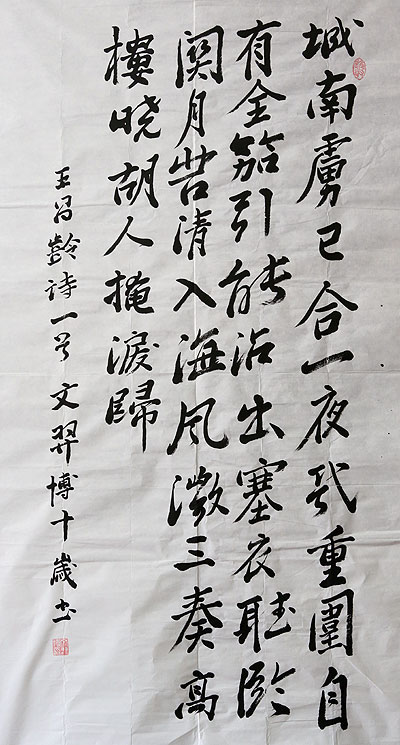 城南虜已合一夜幾重圍自
有金笳引能沾出塞衣聽臨
關月苦清入海風微三奏高
樓曉胡人掩淚歸
王昌齡詩一首 文羿博十歲書